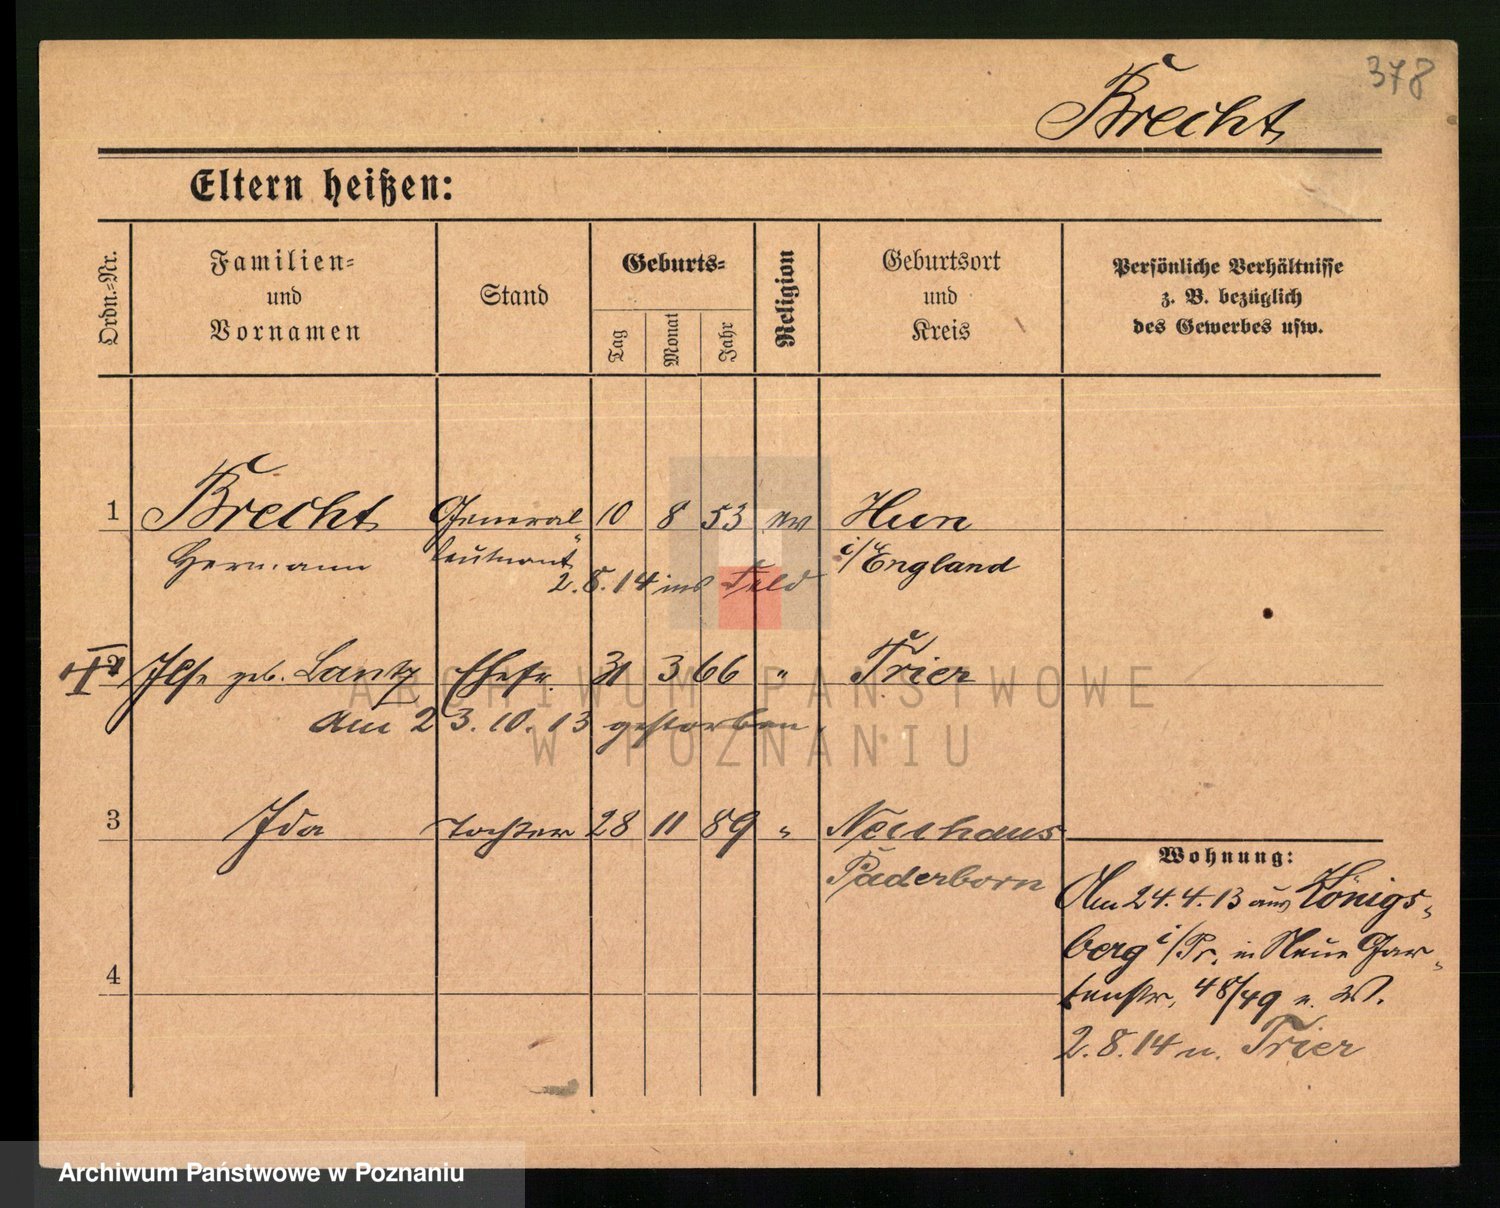 378
Brecht
Eltern heißen:
Ordn.-Nr.
Familien-
und
Vornamen
Stand
Geburts-
Tag
Monat
Jahr
Religion
Geburtsort
und
Kreis
Persönliche Verhältnisse
z. B. bezüglich
des Gewerbes usw.
1 Brecht General 10 8 53 ev Hun
Hermann leutnant i/England
2.8.14 ins Feld
2 Ilse geb. Lantz Ehefr. 31 3 66 " Trier
am 23.10.13 gestorben
3 Ida Tochter 28 11 89 " Neuhaus
Paderborn
Wohnung:
Am 24.4.13 aus Königs-
berg i/Pr. in Neue Gar-
tenstr. 48/49 e. W.
2.8.14 n. Trier
4
ARCHIWUM PAŃSTWOWE
W POZNANIU
Archiwum Państwowe w Poznaniu